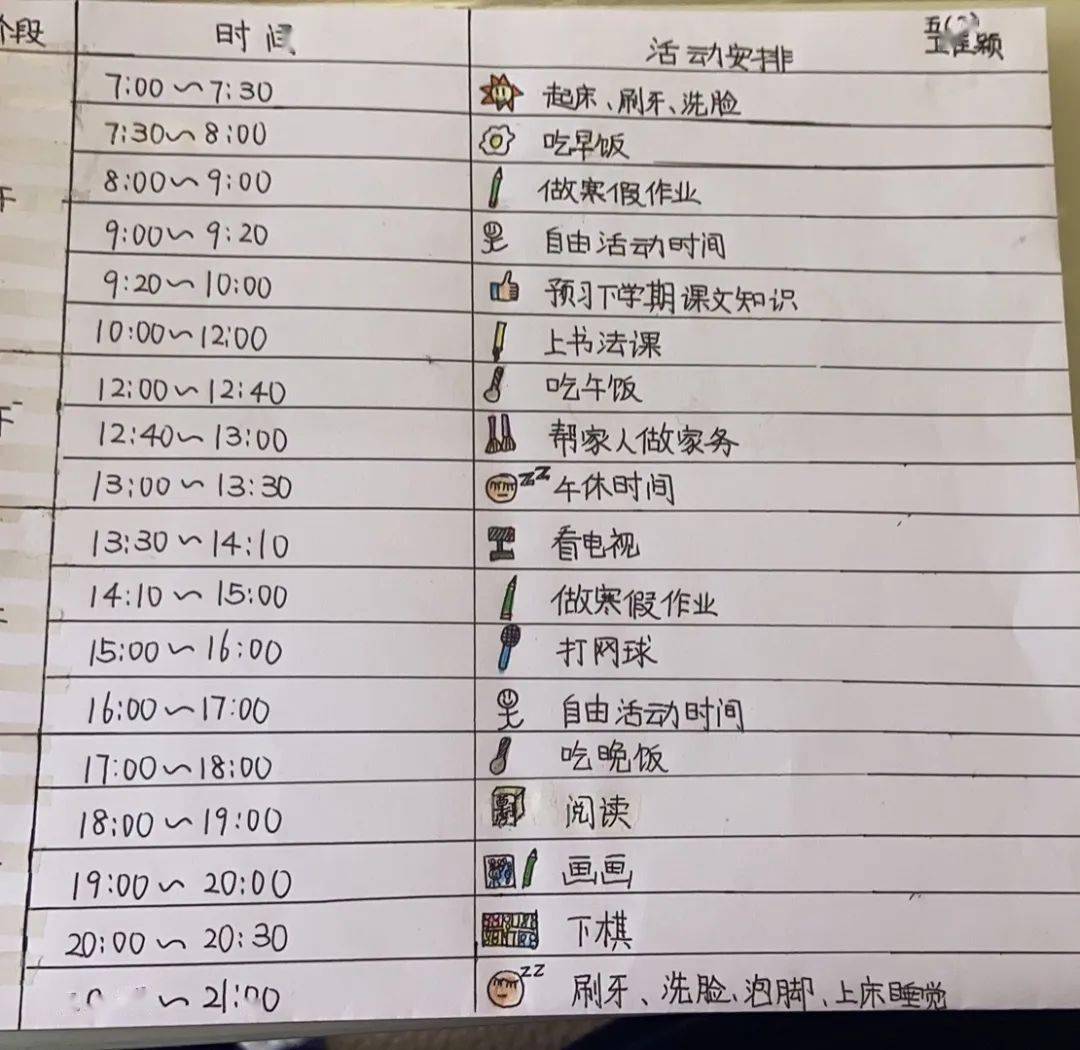 阶段 时间 活动安排
7:00～7:30 起床、刷牙、洗脸
7:30～8:00 吃早饭
8:00～9:00 做寒假作业
9:00～9:20 自由活动时间
9:20～10:00 预习下学期课文知识
10:00～12:00 上书法课
12:00～12:40 吃午饭
12:40～13:00 帮家人做家务
13:00～13:30 午休时间
13:30～14:10 看电视
14:10～15:00 做寒假作业
15:00～16:00 打网球
16:00～17:00 自由活动时间
17:00～18:00 吃晚饭
18:00～19:00 阅读
19:00～20:00 画画
20:00～20:30 下棋
～21:00 刷牙、洗脸、泡脚、上床睡觉